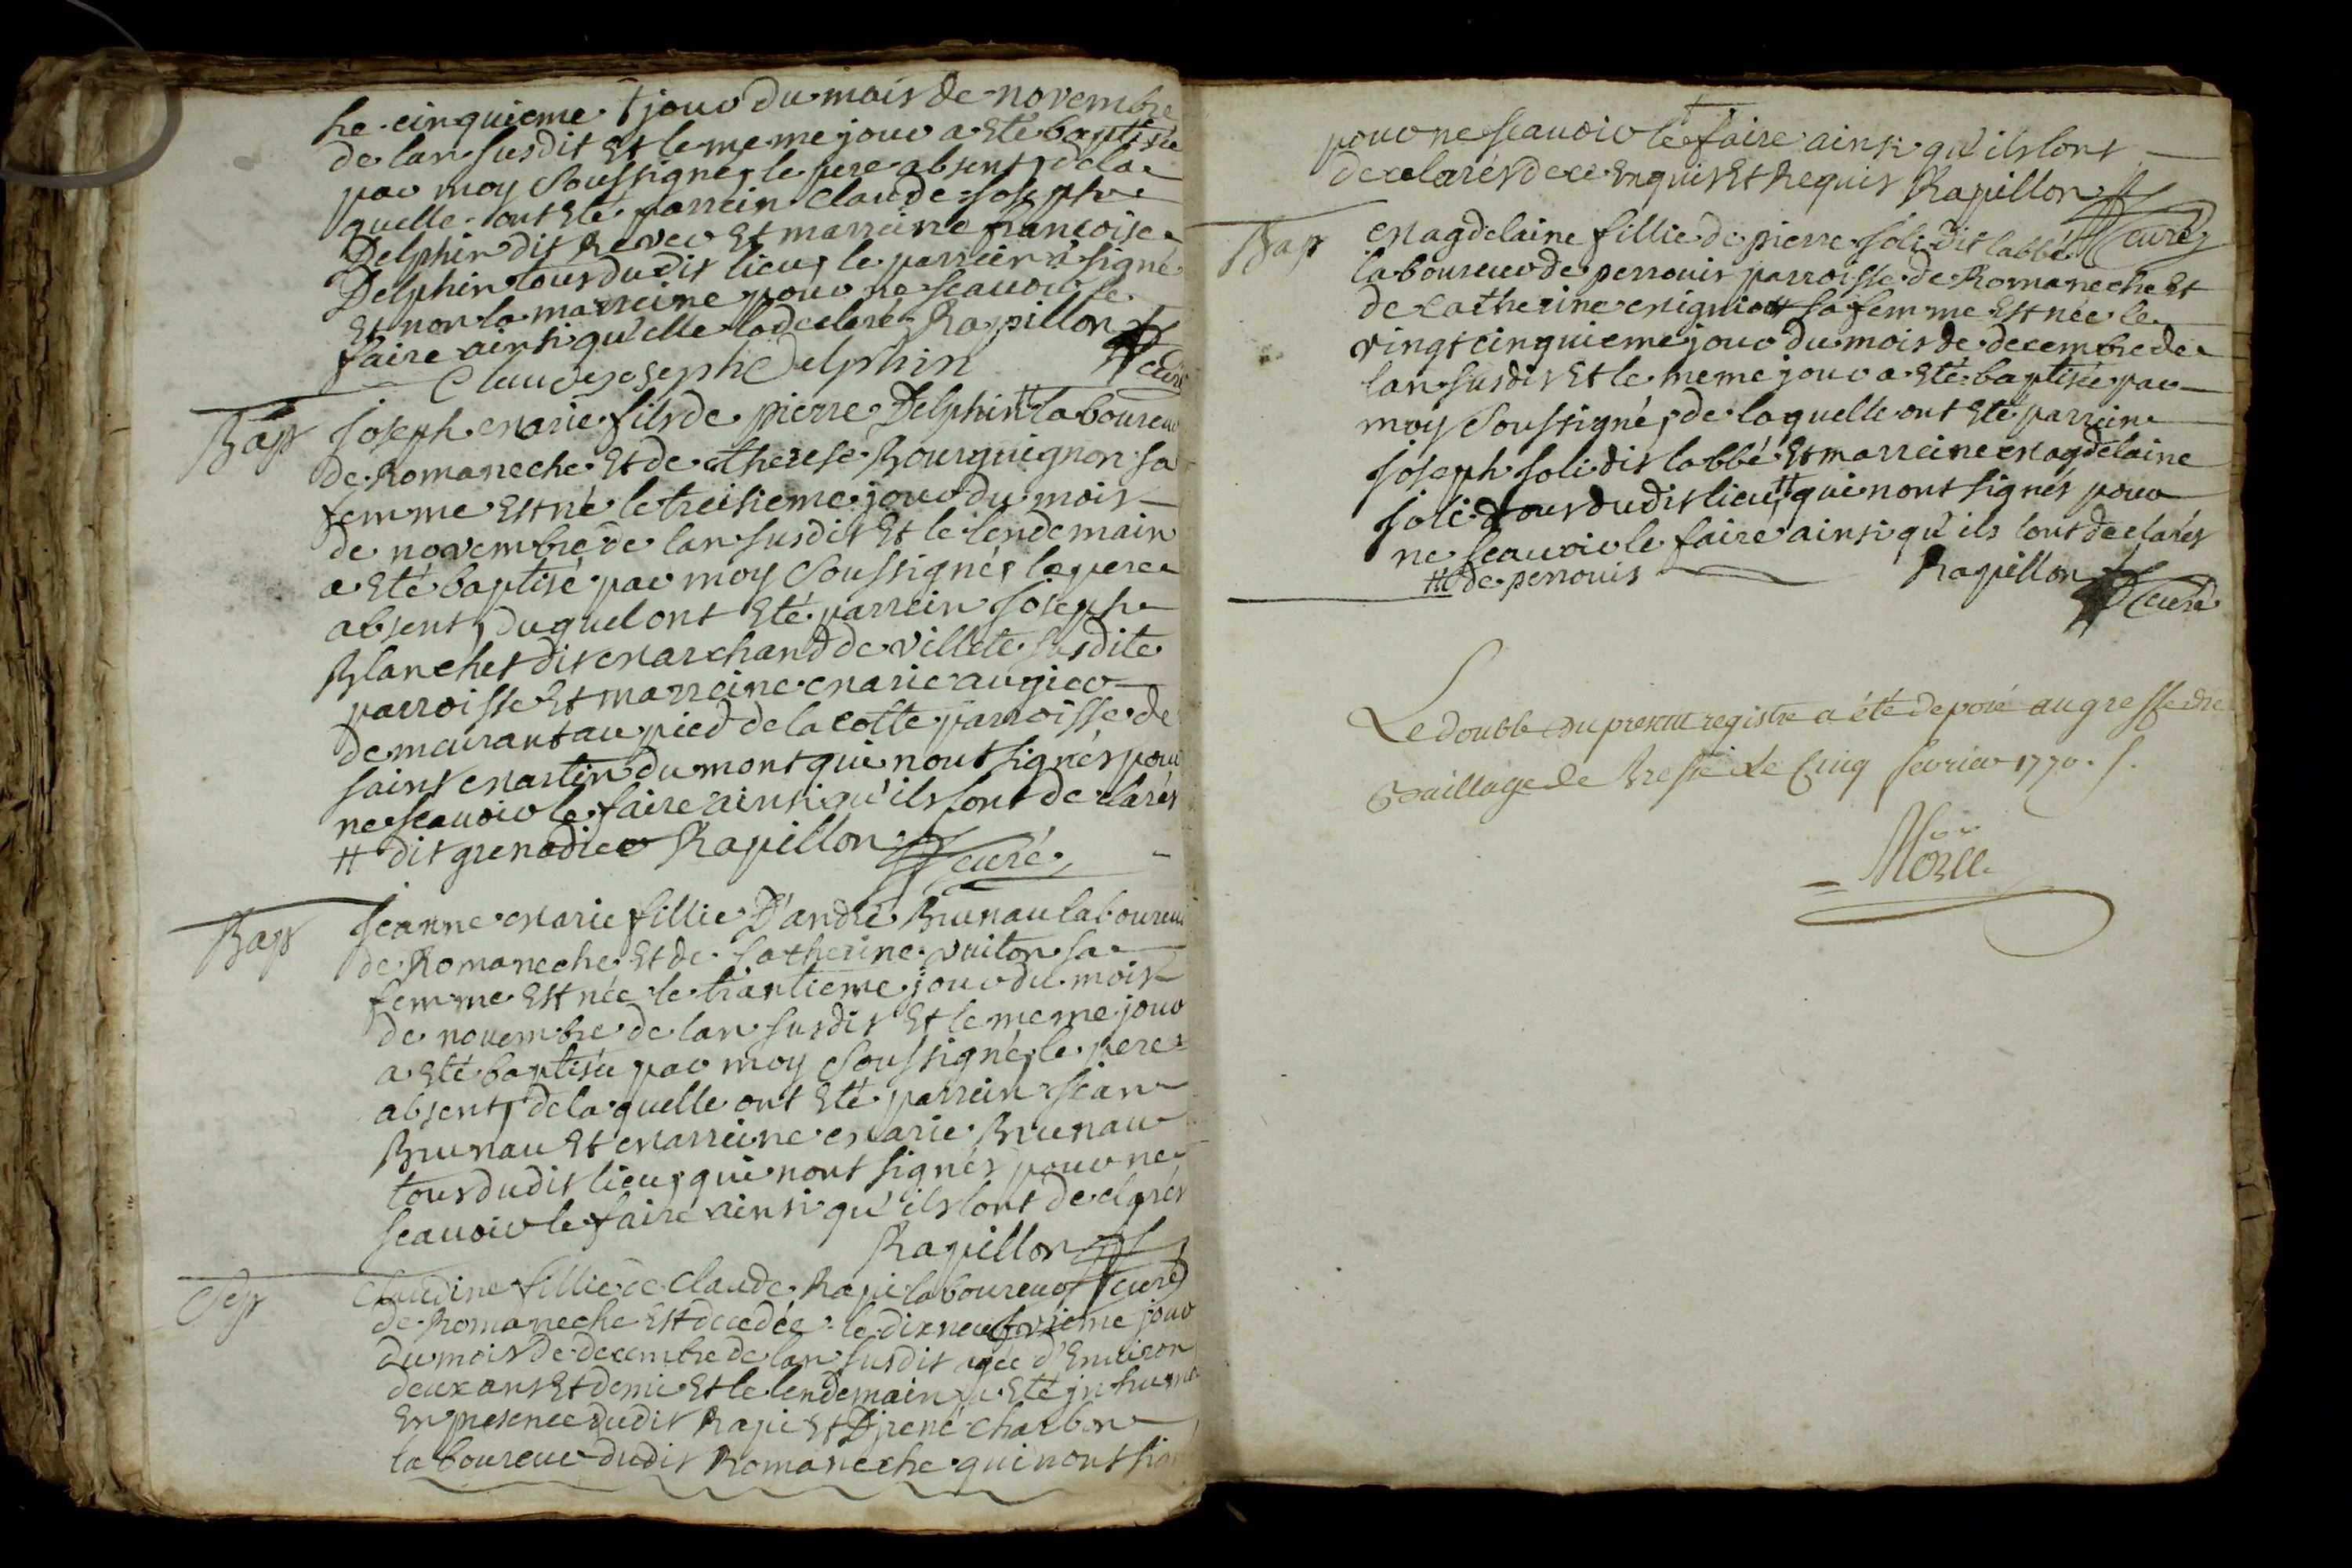 he cinquieme jour du mois de novembre
de lan susdit Et le meme jour a Eté baptisée
par moy Soussigné, le pere absent, de la
quelle ont Eté parrein Claude Joseph
Delphin dit Rever Et marreine francoise
Delphin tous du dit lieu, le parrein a signé
Et non la marreine pour ne scauoir le
faire ainsi qu'elle la declaré Rapillon
Claude joseph Delphin curé
Bap Joseph Marie fils de pierre Delphin # laboureur
de Romaneche Et de therese Bourguignon sa
femme Est né le treisieme jour du mois
de novembre de lan susdit Et le lendemain
a Eté baptisé par moy Soussigné, le pere
absent, duquel ont Eté parrein Joseph
Blanchet dit Marchand de Villete susdite
parroisse Et marreine Marie augier
demeurant au pied de la cotte parroisse de
saint Martin du mont qui nont signés pour
ne scauoir le faire ainsi qu'ils lont declarés
# dit grenadier Rapillon curé
Bap Jeanne Marie fillie D'andré Brunau laboureur
de Romaneche Et de Catherine vuiton sa
femme Est née le trantieme jour du mois
de nouembre de lan susdit Et le meme jour
a Eté baptisée par moy Soussigné, le pere
absent, de la quelle ont Eté parrein Jean
Brunau Et Marreine Marie Brunau
tous du dit lieu, qui nont signés pour ne
scauoir le faire ainsi qu'ils lont declarés
Rapillon
Sep Claudine fillie de Claude Rapi laboureur curé
de Romaneche Est decedée le dixneufvieme jour
du mois de decembre de lan susdit agée d'Enuiron
deux ans Et demi Et le lendemain a Eté jnhumé
En presence dudit Rapi Et D'jrené Charbon
laboureur dudit Romaneche qui nont sig
pour ne scauoir le faire ainsi qu'ils lont
declarés de ce Enquis Et Requis Rapillon
Bap Magdelaine fillie de pierre Joli dit labbé curé
laboureur de perrouis parroisse de Romaneche Et
de Catherine Migniot sa femme Est née le
vingtcinquieme jour du mois de decembre de
lan susdit Et le meme jour a Eté baptisée par
moy Soussigné, de laquelle ont Eté parrein
Joseph Joli dit labbé Et marreine Magdelaine
Joli tous du dit lieu # qui nont signés pour
ne scauoir le faire ainsi qu'ils lont declarés
# de perrouis Rapillon
curé
Le double du present registre a été deposé au greffe du
Bailliage de Bresse Le Cinq fevrier 1770.